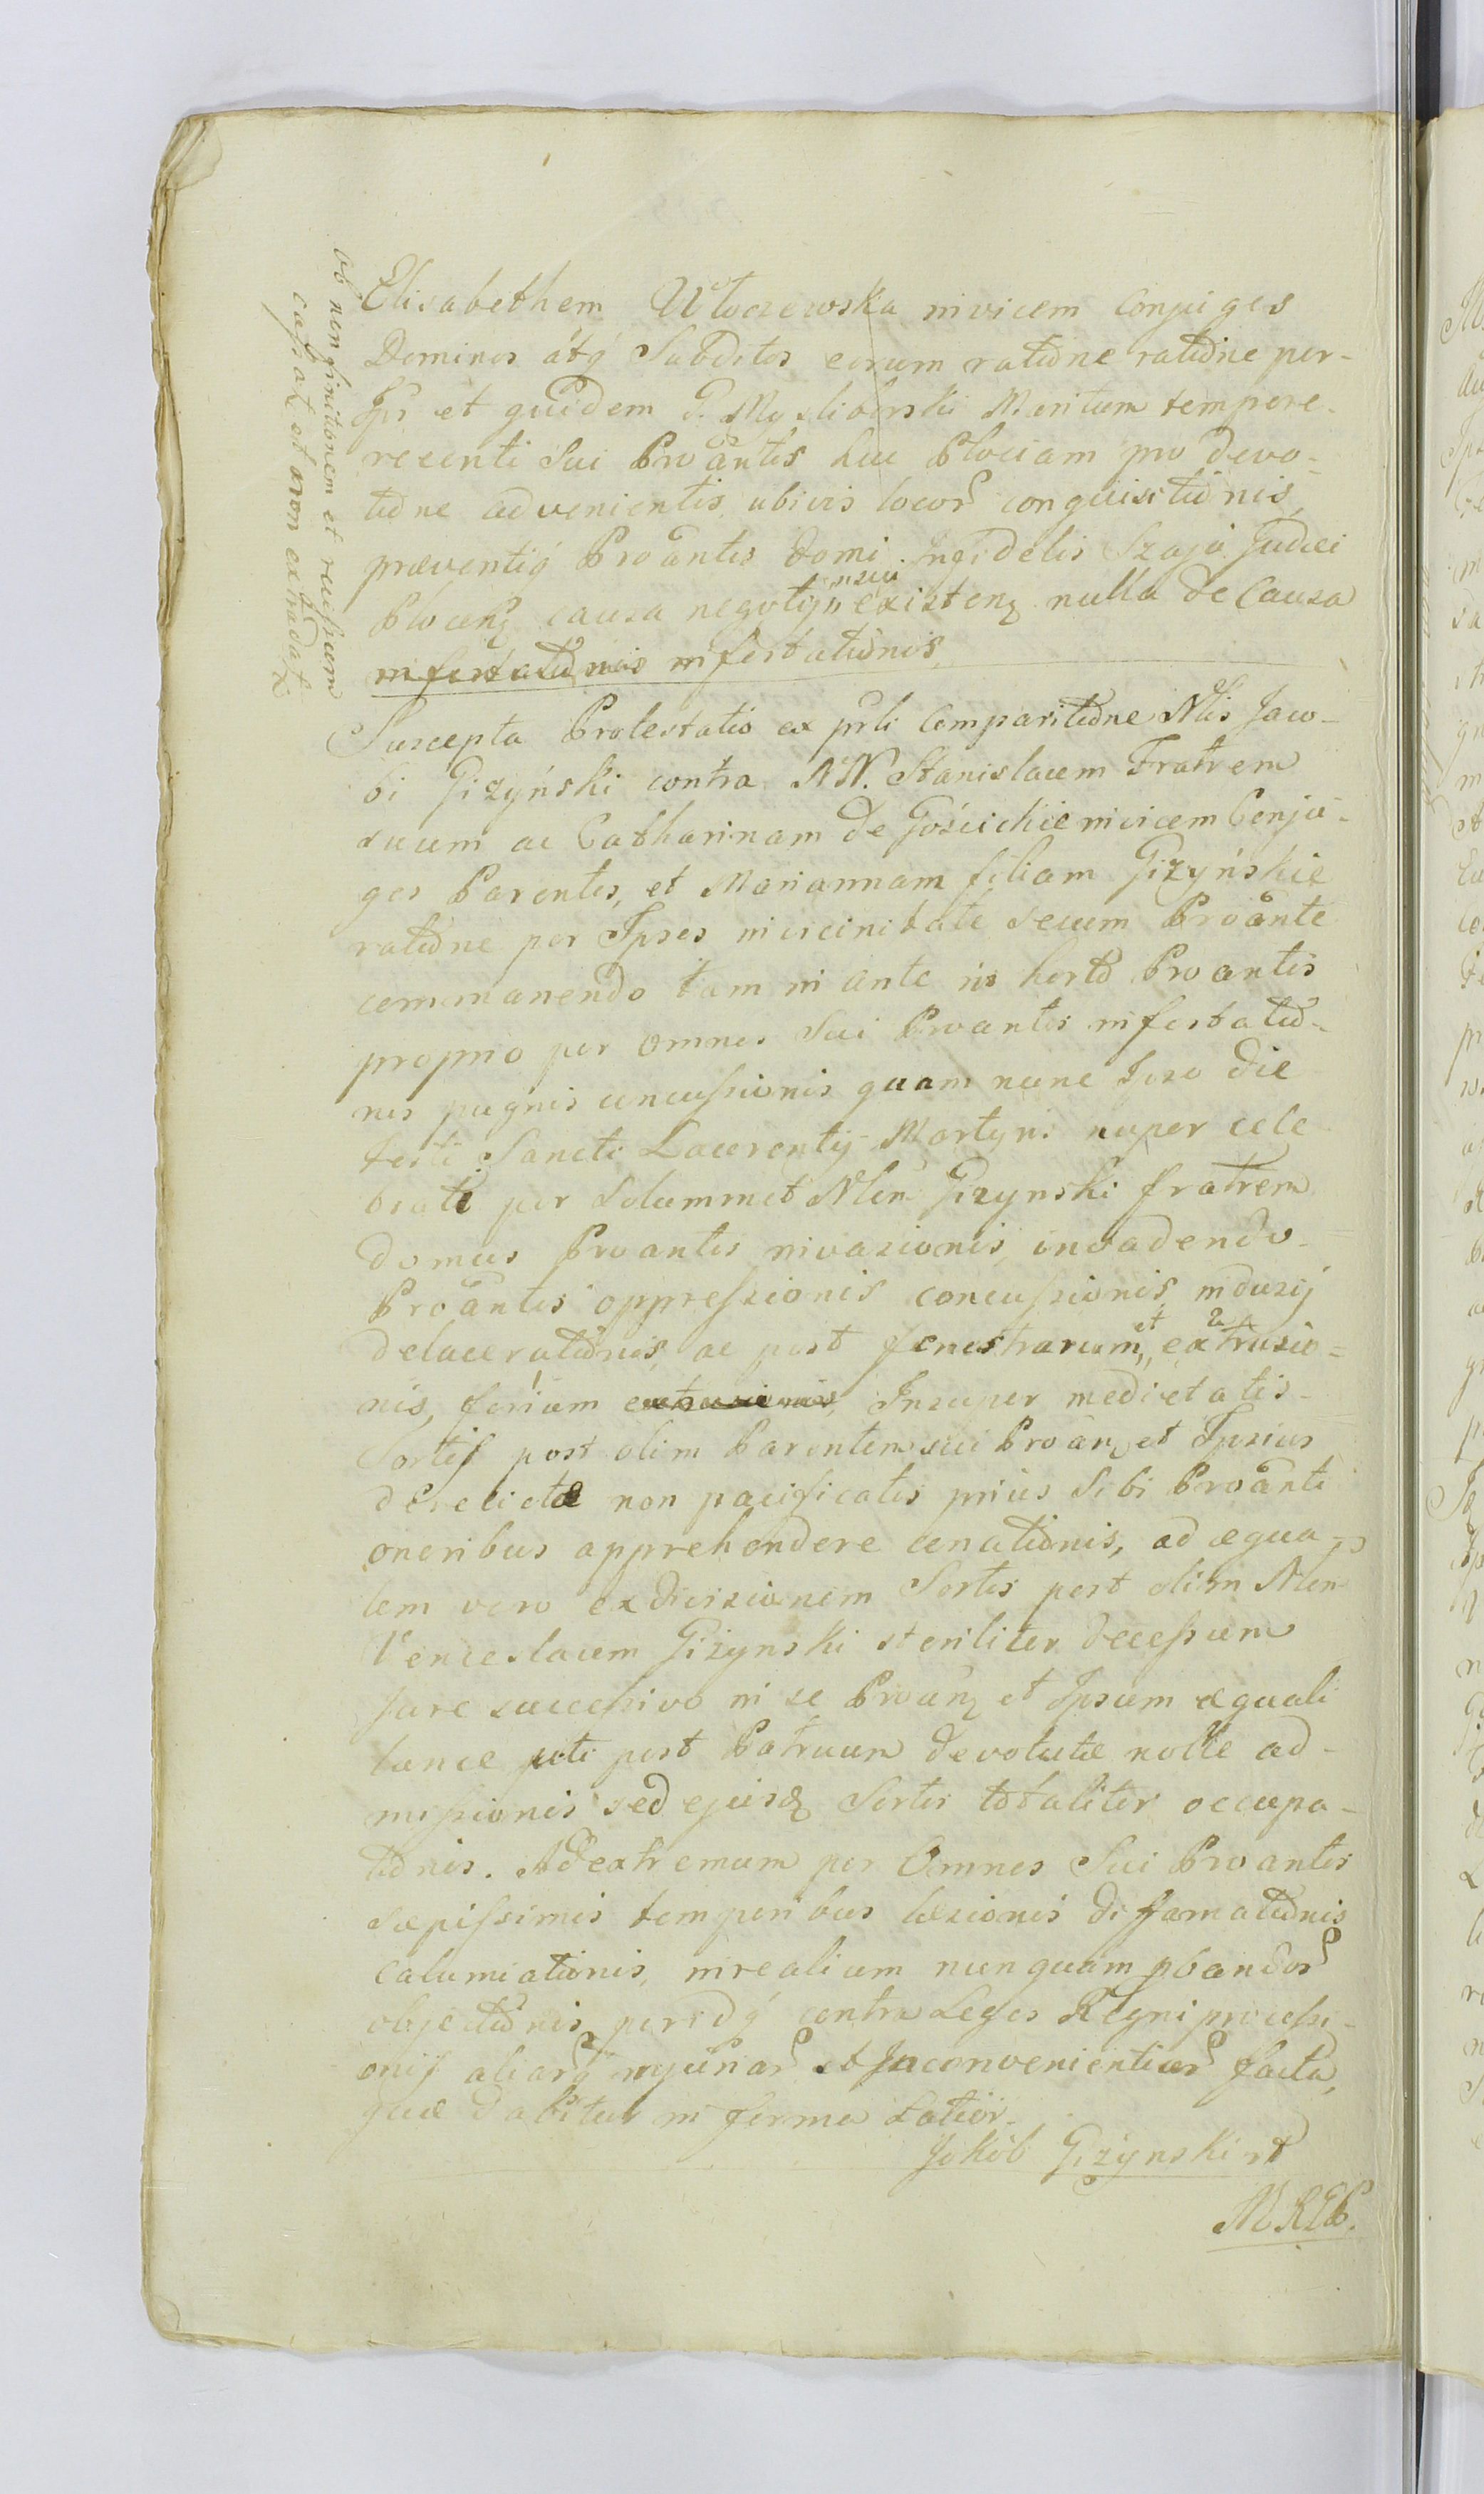 ob non finitionem et recessum
cassat et non extradat
Elisabetham Włoczewska invicem Conjuges
Dominos atq Subditos eorum ratione ratione per
Ips et quidem G. Mysliborski Maritum tempore
recenti sui Proantis huc Plociam pro devo-
tione advenientis, ubivis locor conquisitionis,
præventiq Proantis domi Infidelis Szaja Judæi
Plocen causa negotij nsui existen nulla de Causa
infestationis infestationis,
Suscepta Protestatio ex prli Comparitione Nlis Jaco-
bi Giżyński contra NN. Stanislaum Fratrem
suum ac Catharinam de Gościckie invicem Conju-
ges Parentes, et Mariannam filiam Giżyńskie
ratione per Ipsos in vicinitate secum Proante
commanendo tam in ante in horto Proantis
proprio per omnes sui Proantis infestatio-
nis pugnis concussionis quam nunc Ipso die
festi Sancti Laurentij Martyris nuper cele
brati per Solummet Nlem Giżynski fratrem
domus Proantis invasionis, invadendo
Proantis oppressionis concussionis, indusij
delacerationis, ac post fenestrarum, et extrusio=
nis, forium extrusionis, Insuper medietatis
Sortis post olim Parentem sui Proan et Ipsius
derelictæ non pacificatis prius Sibi Proanti
oneribus apprehendere conationis, ad æqua-
lem vero exdivisionem Sortis post olim Nlem
Venceslaum Giżynski steriliter decessum
jure successivo in se Proan et Ipsum æquali
lance uti post Patruum devolutæ nolle ad-
missionis sed ejusq Sortis totaliter occupa-
tionis. Ad extremum per Omnes Sui Proantis
sæpissimis temporibus læsionis diffamationis
calumiationis, inrealium nunquam pbandor
objectionis, peridq contra Leges Regni processi-
onis aliarq injuriar et Inconvenientiar facta,
quæ dabitur in forma Latior.
Jokób Giżynski